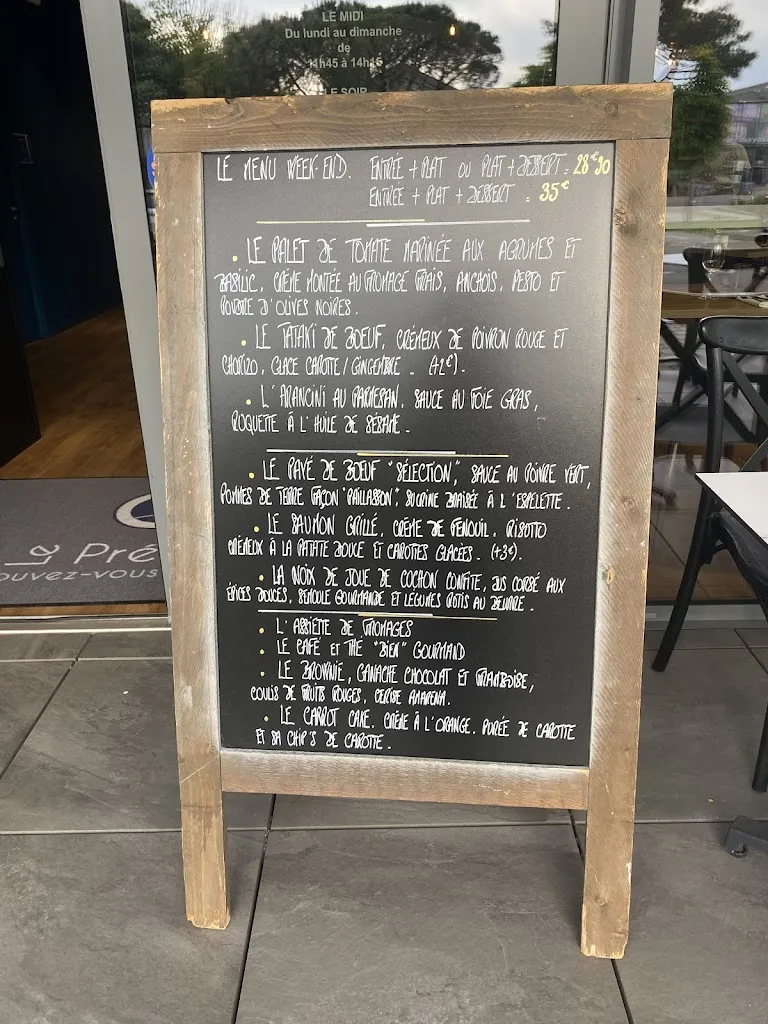 LE MIDI
Du lundi au dimanche
de
11h45 à 14h15
LE SOIR
LE MENU WEEK-END. ENTRÉE + PLAT OU PLAT + DESSERT = 28€90
ENTRÉE + PLAT + DESSERT = 35€
• LE PALET DE TOMATE MARINÉE AUX AGRUMES ET
BASILIC, CRÈME MONTÉE AU FROMAGE FRAIS, ANCHOIS, PESTO ET
POUDRE D'OLIVES NOIRES.
• LE TATAKI DE BOEUF, CRÉMEUX DE POIVRON ROUGE ET
CHORIZO, GLACE CAROTTE / GINGEMBRE - (+2€).
• L'ARANCINI AU PARMESAN, SAUCE AU FOIE GRAS,
ROQUETTE À L'HUILE DE SÉSAME.
• LE PAVÉ DE BOEUF "SÉLECTION", SAUCE AU POIVRE VERT,
POMMES DE TERRE FAÇON "PAILLASSON", SUCRINE BRAISÉE À L'ESPELETTE.
• LE SAUMON GRILLÉ, CRÈME DE FENOUIL, RISOTTO
CRÉMEUX À LA PATATE DOUCE ET CAROTTES GLACÉES - (+3€).
• LA NOIX DE JOUE DE COCHON CONFITE, JUS CORSÉ AUX
ÉPICES DOUCES, SEMOULE GOURMANDE ET LÉGUMES RÔTIS AU BEURRE.
• L'ASSIETTE DE FROMAGES
• LE CAFÉ ET THÉ "BIEN" GOURMAND
• LE BROWNIE, GANACHE CHOCOLAT ET FRAMBOISE,
COULIS DE FRUITS ROUGES, CERISE AMARENA.
• LE CARROT CAKE, CRÈME À L'ORANGE, PURÉE DE CAROTTE
ET SA CHIP'S DE CAROTTE.
Le Pré
ouvez-vous